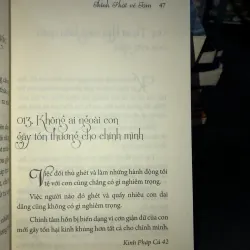 Thích Phật và Tâm 47
013. Không ai ngoài con
gây tổn thương cho chính mình
Việc đối thủ ghét và làm những hành động tồi
tệ với con cũng chẳng có gì nghiêm trọng.
Việc người nào đó ghét và quấy nhiễu con đại
dăng cũng không có gì nghiêm trọng.
Chính tâm hồn bị hiến dạng vì cơn giận dữ của con
mới gây tổn hại khung hơn tất cả cho chính mình.
Kinh Pháp Cú 42